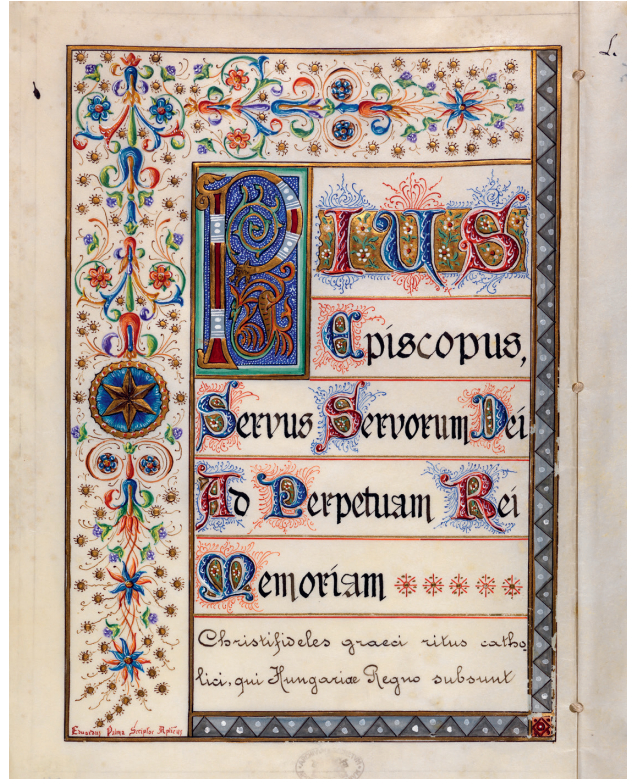 PIUS
Episcopus,
Servus Servorum Dei
Ad Perpetuam Rei
Memoriam
Christifideles graeci ritus catho
lici, qui Hungariae Regno subsunt
Scriptor